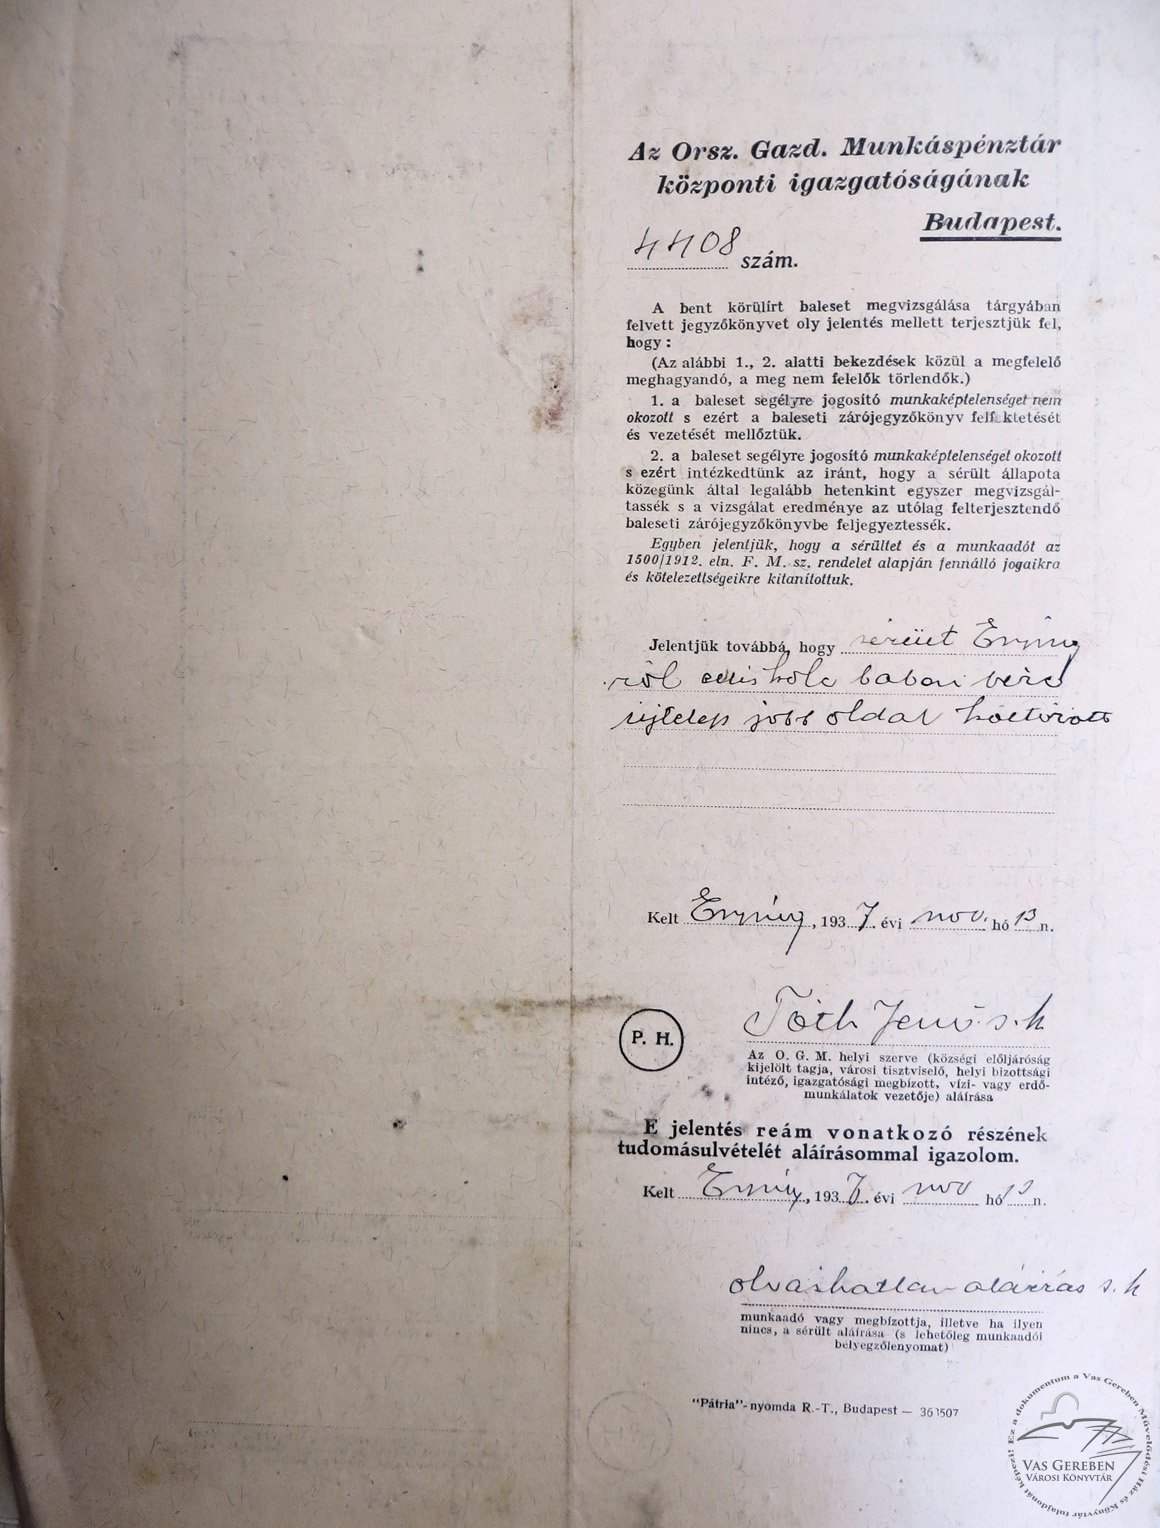 Az Orsz. Gazd. Munkáspénztár
központi igazgatóságának
Budapest.
4408 szám.
A bent körülírt baleset megvizsgálása tárgyában
felvett jegyzőkönyvet oly jelentés mellett terjesztjük fel,
hogy :
(Az alábbi 1., 2. alatti bekezdések közül a megfelelő
meghagyandó, a meg nem felelők törlendők.)
1. a baleset segélyre jogosító munkaképtelenséget nem
okozott s ezért a baleseti zárójegyzőkönyv felfektetését
és vezetését mellőztük.
2. a baleset segélyre jogosító munkaképtelenséget okozott
s ezért intézkedtünk az iránt, hogy a sérült állapota
közegünk által legalább hetenkint egyszer megvizsgál-
tassék s a vizsgálat eredménye az utólag felterjesztendő
baleseti zárójegyzőkönyvbe feljegyeztessék.
Egyben jelentjük, hogy a sérültet és a munkaadót az
1500/1912. eln. F. M. sz. rendelet alapján fennálló jogaikra
és kötelezettségeikre kitanítottuk.
Jelentjük továbbá, hogy sérült
ról
újtelep jobb oldal
Kelt , 1937. évi nov. hó 13 n.
Tóth Jenő s. k
P. H.
Az O. G. M. helyi szerve (községi előljáróság
kijelölt tagja, városi tisztviselő, helyi bizottsági
intéző, igazgatósági megbízott, vízi- vagy erdő-
munkálatok vezetője) aláírása
E jelentés reám vonatkozó részének
tudomásulvételét aláírásommal igazolom.
Kelt , 1937. évi nov hó 13 n.
olvashatlan aláírás s. k
munkaadó vagy megbízottja, illetve ha ilyen
nincs, a sérült aláírása (s lehetőleg munkaadói
bélyegzőlenyomat)
"Pátria"-nyomda R.-T., Budapest —
Ez a dokumentum a Vas Gereben Művelődési Ház és Könyvtár tulajdonát képezi!
VAS GEREBEN
VÁROSI KÖNYVTÁR